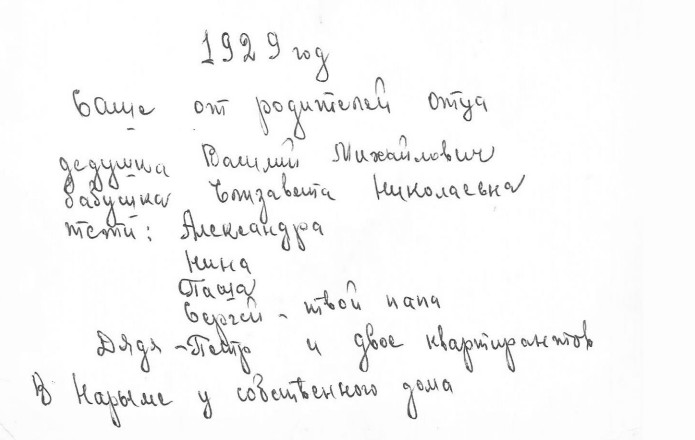 1929 год
Саше от родителей отца
дедушка Василий Михайлович
бабушка Елизавета Николаевна
тёти: Александра
Нина
Паша
Сергей - твой папа
Дядя - Петр и двое квартирантов
В Нарыме у собственного дома